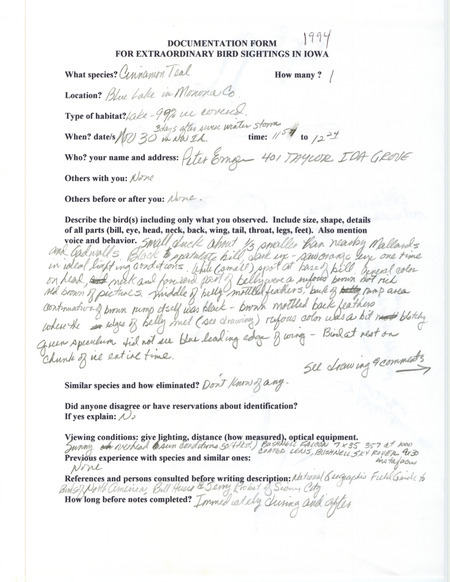 1994
DOCUMENTATION FORM
FOR EXTRAORDINARY BIRD SIGHTINGS IN IOWA
What species? Cinnamon Teal How many? 1
Location? Blue Lake in Monona Co.
Type of habitat? Lake - 99% ice covered.
3 days after severe winter storm
When? date/s Nov 30 in NW IA. time: to
Who? your name and address: Peter 401 TAYLOR IDA GROVE
Others with you: None
Others before or after you: None.
Describe the bird(s) including only what you observed. Include size, shape, details
of all parts (bill, eye, head, neck, back, wing, tail, throat, legs, feet). Also mention
voice and behavior. Small duck about 1/3 smaller than nearby Mallards
and Gadwalls. Black spatulate bill, dark eye - saw orange eye one time
in ideal lighting conditions. White (small) spot at base of bill. General color
on head, neck and forward part of belly was a rufous brown not rich
red brown of pictures. middle of belly - mottled feathers. but rump area
continuation of brown rump itself was black - brown mottled back feathers
where the edges of belly met (see drawing) rufous color was a bit blotchy
green speculum did not see blue leading edge of wing - Bird at rest on
chunk of ice entire time.
See drawing & comments
Similar species and how eliminated? Don't know of any.
Did anyone disagree or have reservations about identification?
If yes explain: No
Viewing conditions: give lighting, distance (how measured), optical equipment.
Sunny overhead sun conditions BUSHNELL FALCON 7x35 357 at 1000
COATED LENS, BUSHNELL SKY ROVER
Previous experience with species and similar ones:
None
References and persons consulted before writing description: National Geographic Field Guide to
Birds of North America, Bill Huser & Jerry Probst of Sioux City
How long before notes completed? Immediately during and after